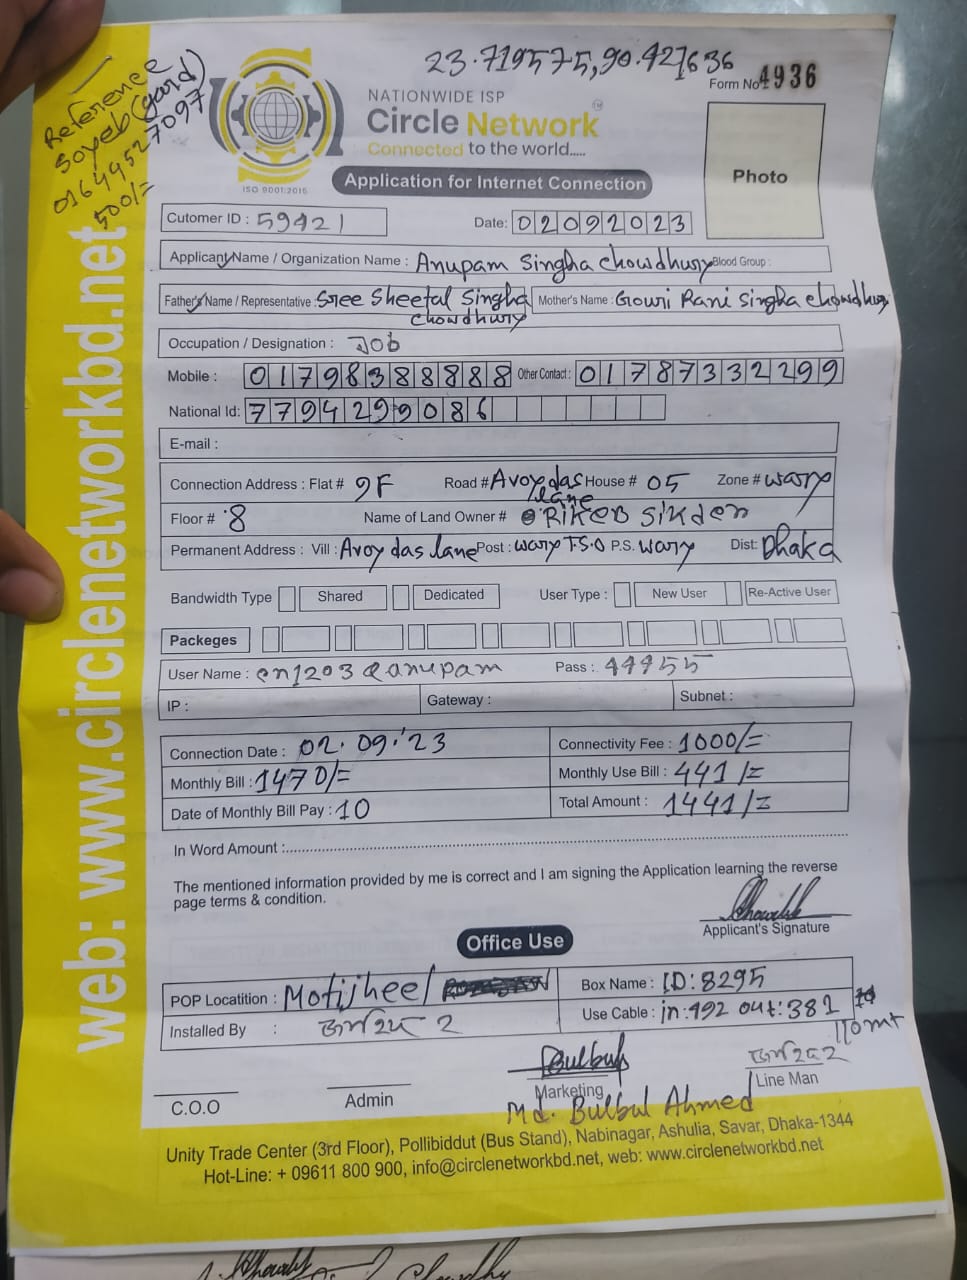 23.719575,90.427636
Reference
Soyeb (gard)
01644527097
500/=
Form No 4936
NATIONWIDE ISP
Circle Network
TM
Connected to the world.....
ISO 9001:2015
Application for Internet Connection
Photo
Cutomer ID : 59421
Date: 02092023
Applicant Name / Organization Name : Anupam Singha Chowdhury Blood Group :
Father's Name / Representative : Sree Sheetal Singha Chowdhury Mother's Name : Gouri Rani Singha Chowdhury
Occupation / Designation : Job
Mobile : 01798388888 Other Contact : 01787332299
National Id: 7794299086
E-mail :
Connection Address : Flat # 9F Road # Avoy das lane House # 05 Zone # wary
Floor # 8 Name of Land Owner # Rikeb Sikder
Permanent Address : Vill : Avoy das lane Post : wary T.S.O P.S. wary Dist: Dhaka
Bandwidth Type Shared Dedicated User Type : New User Re-Active User
Packeges
User Name : cn1203@anupam Pass : 44455
IP : Gateway : Subnet :
Connection Date : 02.09.'23 Connectivity Fee : 1000/=
Monthly Bill : 1470/= Monthly Use Bill : 441/=
Date of Monthly Bill Pay : 10 Total Amount : 1441/=
In Word Amount :
The mentioned information provided by me is correct and I am signing the Application learning the reverse
page terms & condition.
Applicant's Signature
Office Use
POP Locatition : Motijheel Box Name : ID:8295
Installed By : 2 Use Cable : in:492 out:382
110mt
2
Bulbul
C.O.O Admin Marketing Line Man
Md. Bulbul Ahmed
Unity Trade Center (3rd Floor), Pollibiddut (Bus Stand), Nabinagar, Ashulia, Savar, Dhaka-1344
Hot-Line: + 09611 800 900, info@circlenetworkbd.net, web: www.circlenetworkbd.net
web: www.circlenetworkbd.net